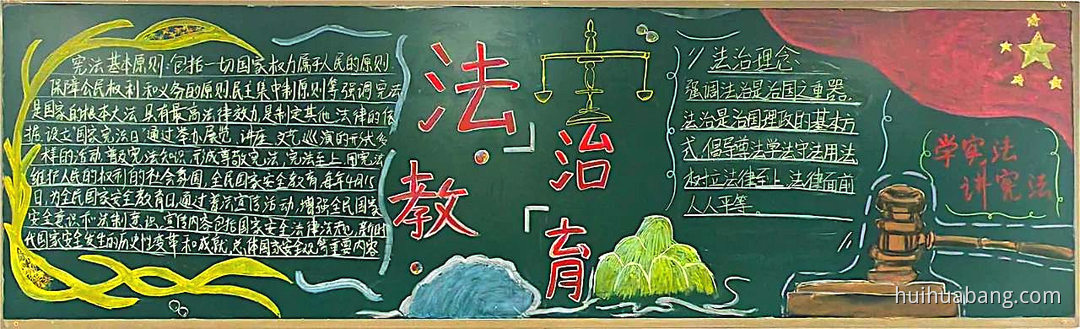 宪法基本原则:包括一切国家权力属于人民的原则
保障公民权利和义务的原则民主集中制原则等强调宪法
是国家的根本大法,具有最高法律效力是制定其他法律的依
据.设立国家宪法日,通过举办展览.讲座.文艺巡演的形式多
样的活动.普及宪法知识.形成尊敬宪法.宪法至上.用宪法
维护人民的权利的社会氛围.全民国家安全教育.每年4月15
日.为全民国家安全教育日.通过普法宣传活动.增强全民国家
安全意识.
代国家安全发生的历史性变革和成就.总体国家安全观等重要内容
法
治
教
育
法治理念:
强调法治是治国之重器.
法治是治国理政的基本方
式,倡导尊法学法守法用法
法律至上.法律面前
人人平等.
学宪法
讲宪法
huihuabang.com